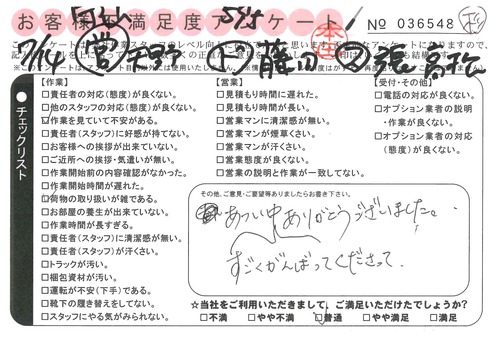 お客様満足度アンケート
№ 036548
チェックリスト
【作業】
□責任者の対応(態度)が良くない。
□他のスタッフの対応(態度)が良くない。
□作業を見ていて不安がある。
□責任者(スタッフ)に好感が持てない。
□お客様への挨拶が出来ていない。
□ご近所への挨拶・気遣いが無い。
□作業開始前の内容確認がなかった。
□作業開始時間が遅れた。
□荷物の取り扱いが雑である。
□お部屋の養生が出来ていない。
□作業時間が長すぎる。
□責任者(スタッフ)に清潔感が無い。
□責任者(スタッフ)が汗くさい。
□トラックが汚い。
□梱包資材が汚い。
□運転が不安(下手)である。
□靴下の履き替えをしてない。
□スタッフにやる気がみられない。
【営業】
□見積もり時間に遅れた。
□見積もり時間が長い。
□営業マンに清潔感が無い。
□営業マンが煙草くさい。
□営業マンが汗くさい。
□営業態度が良くない。
□営業の説明と作業が一致してない。
【受付・その他】
□電話の対応が良くない。
□オプション業者の説明
・作業が良くない。
□オプション業者の対応
(態度)が良くない。
その他、ご意見・ご要望等ありましたらお書き下さい。
あつい中ありがとうございました。
すごくがんばってくださって。
☆当社をご利用いただきまして、ご満足いただけたでしょうか?
□不満 □やや不満 □普通 □やや満足 □満足